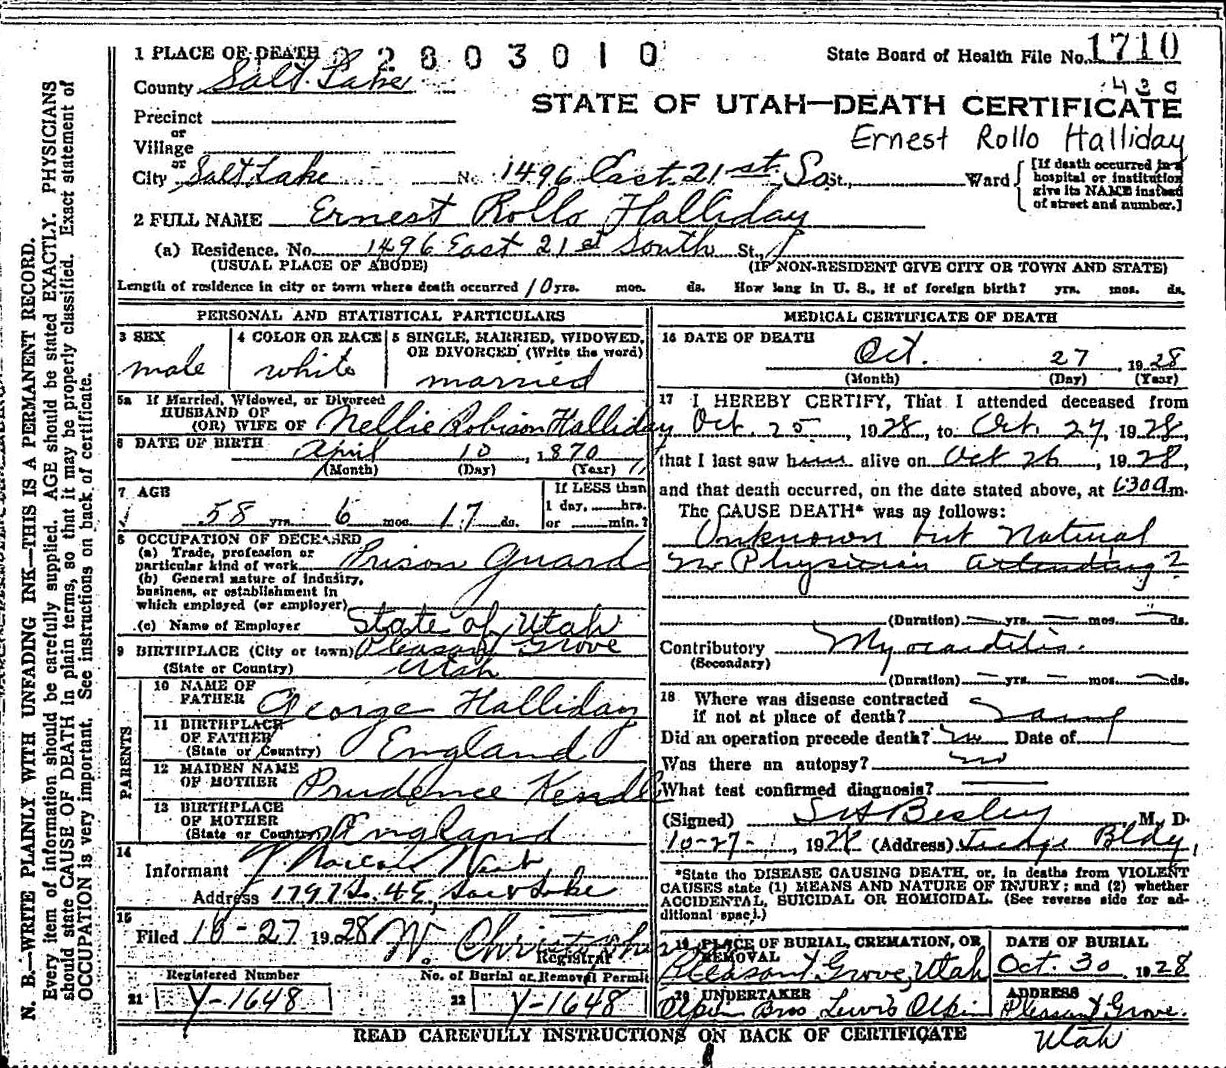 1 PLACE OF DEATH 2 2 8 0 3 0 1 0 State Board of Health File No. 1710
County Salt Lake 430
STATE OF UTAH—DEATH CERTIFICATE
Precinct
or
Village
Ernest Rollo Halliday
or
City Salt Lake No. 1496 East 21st So St., Ward
[If death occurred in a
hospital or institution
give its NAME instead
of street and number.]
2 FULL NAME Ernest Rollo Halliday
(a) Residence. No. 1496 East 21st South St.,
(USUAL PLACE OF ABODE) (IF NON-RESIDENT GIVE CITY OR TOWN AND STATE)
Length of residence in city or town where death occurred 10 yrs. mos. ds. How long in U. S., if of foreign birth? yrs. mos. ds.
PERSONAL AND STATISTICAL PARTICULARS
3 SEX
male
4 COLOR OR RACE
white
5 SINGLE, MARRIED, WIDOWED,
OR DIVORCED (Write the word)
married
5a If Married, Widowed, or Divorced
HUSBAND OF
(OR) WIFE OF Nellie Robison Halliday
6 DATE OF BIRTH April 10, 1870
(Month) (Day) (Year)
7 AGE
58 yrs. 6 mos. 17 ds.
If LESS than
1 day, hrs.
or min.?
8 OCCUPATION OF DECEASED
(a) Trade, profession or
particular kind of work Prison Guard
(b) General nature of industry,
business, or establishment in
which employed (or employer)
(c) Name of Employer State of Utah
9 BIRTHPLACE (City or town) Pleasant Grove
(State or Country) Utah
PARENTS
10 NAME OF
FATHER George Halliday
11 BIRTHPLACE
OF FATHER
(State or Country) England
12 MAIDEN NAME
OF MOTHER Prudence
13 BIRTHPLACE
OF MOTHER
(State or Country) England
14
Informant
Address 1797 S. 4 E. Salt Lake
15
Filed 10-27 1928 W. Christopherson
Registrar
Registered Number No. of Burial or Removal Permit
21 Y-1648 22 Y-1648
MEDICAL CERTIFICATE OF DEATH
16 DATE OF DEATH
Oct. 27 1928
(Month) (Day) (Year)
17 I HEREBY CERTIFY, That I attended deceased from
Oct. 25, 1928, to Oct. 27, 1928,
that I last saw him alive on Oct 26, 1928,
and that death occurred, on the date stated above, at 630 a m.
The CAUSE DEATH* was as follows:
Unknown but Natural
no Physician attending?
(Duration) yrs. mos. ds.
Contributory Myocarditis.
(Secondary)
(Duration) yrs. mos. ds.
18 Where was disease contracted
if not at place of death? Same
Did an operation precede death? no Date of
Was there an autopsy? no
What test confirmed diagnosis?
(Signed) S H Besley M. D.
10-27-, 1928 (Address) Judge Bldg,
*State the DISEASE CAUSING DEATH, or, in deaths from VIOLENT
CAUSES state (1) MEANS AND NATURE OF INJURY; and (2) whether
ACCIDENTAL, SUICIDAL OR HOMICIDAL. (See reverse side for ad-
ditional space.)
19 PLACE OF BURIAL, CREMATION, OR
REMOVAL
Pleasant Grove, Utah
DATE OF BURIAL
Oct. 30, 1928
20 UNDERTAKER
Olpin Bros Lewis Olpin
ADDRESS
Pleasant Grove.
Utah
READ CAREFULLY INSTRUCTIONS ON BACK OF CERTIFICATE
N. B.—WRITE PLAINLY WITH UNFADING INK—THIS IS A PERMANENT RECORD.
Every item of information should be carefully supplied. AGE should be stated EXACTLY. PHYSICIANS
should state CAUSE OF DEATH in plain terms, so that it may be properly classified. Exact statement of
OCCUPATION is very important. See instructions on back of certificate.